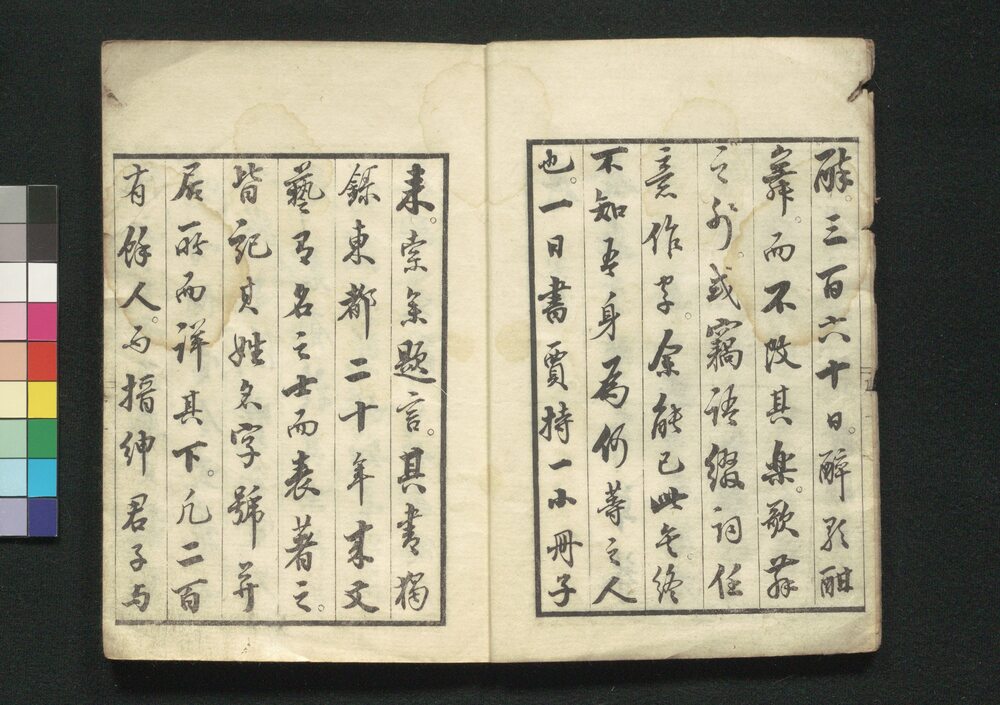 酔。三百六十日。醉歌酣
舞。而不改其楽。歌舞
之外。或竊語綴詞任
意作字。余能已此矣。終
不知吾身為何等之人
也。一日書賈持一小冊子
来。索余題言。其書獨
錄東都二十年来文
藝有名之士而表著之。
皆記其姓名字號并
居所而詳其下。凡二百
有餘人。而搢紳君子与